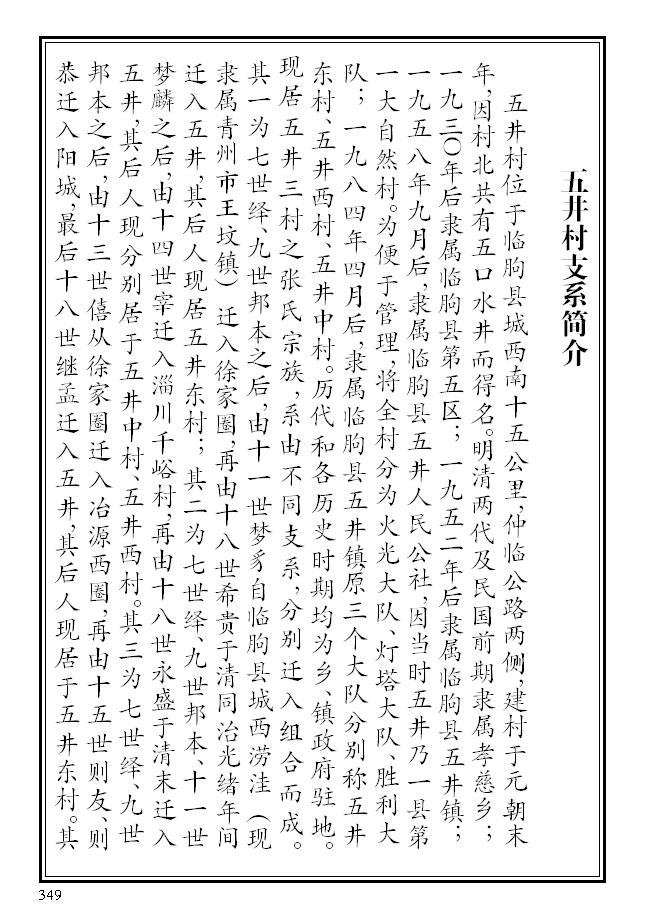 五井村支系简介
五井村位于临朐县城西南十五公里，仲临公路两侧，建村于元朝末
年，因村北共有五口水井而得名。明清两代及民国前期隶属孝慈乡；
一九三〇年后隶属临朐县第五区；一九五二年后隶属临朐县五井镇；
一九五八年九月后，隶属临朐县五井人民公社，因当时五井乃一县第
一大自然村。为便于管理，将全村分为火光大队、灯塔大队、胜利大
队；一九八四年四月后，隶属临朐县五井镇，原三个大队分别称五井
东村、五井西村、五井中村。历代和各历史时期均为乡、镇政府驻地。
现居五井三村之张氏宗族，系由不同支系，分别迁入组合而成。
其一为七世绎、九世邦本之后，由十一世梦豸自临朐县城西涝洼（现
隶属青州市王坟镇）迁入徐家圈，再由十八世希贵于清同治光绪年间
迁入五井，其后人现居五井东村；其二为七世绎、九世邦本、十一世
梦麟之后，由十四世宰迁入淄川千峪村，再由十八世永盛于清末迁入
五井，其后人现分别居于五井中村、五井西村。其三为七世绎、九世
邦本之后，由十三世僖从徐家圈迁入冶源西圈，再由十五世则友、则
恭迁入阳城，最后十八世继孟迁入五井，其后人现居于五井东村。其
349